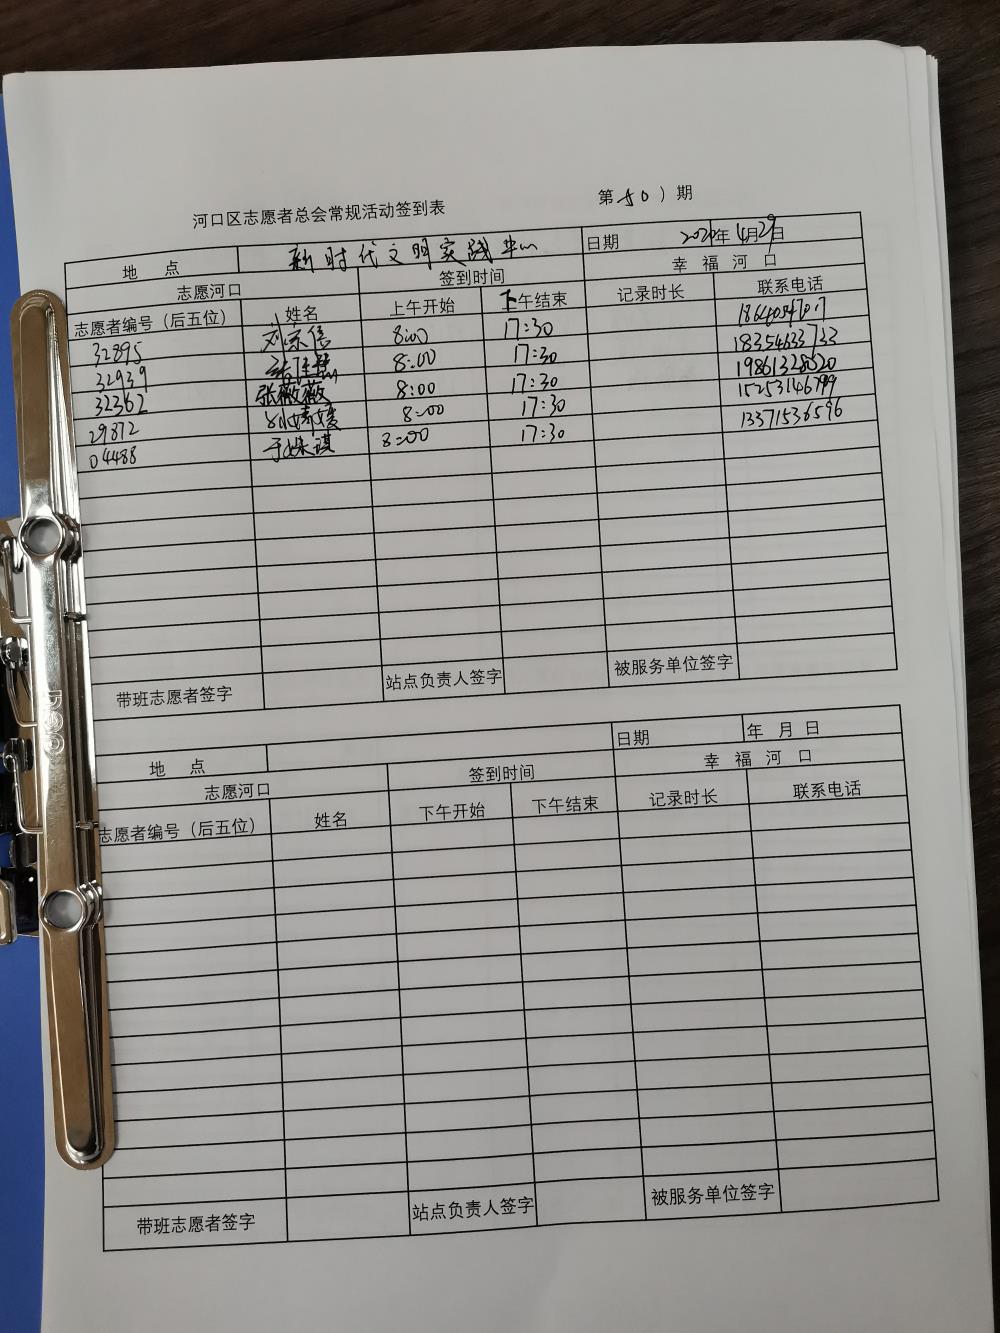 河口区志愿者总会常规活动签到表 第50）期
地 点 新时代文明实践中心 日期 2020年4月29日
志愿河口 签到时间 幸福河口
志愿者编号（后五位） 姓名 上午开始 下午结束 记录时长 联系电话
32895 刘宗信 8:00 17:30
32939 8:00 17:30 18354633733
32362 张薇薇 8:00 17:30 19861328620
29872 8:00 17:30 15253146799
04488 于姝琪 8:00 17:30 13371536596
带班志愿者签字 站点负责人签字 被服务单位签字
地 点 日期 年 月 日
志愿河口 签到时间 幸福河口
志愿者编号（后五位） 姓名 下午开始 下午结束 记录时长 联系电话
带班志愿者签字 站点负责人签字 被服务单位签字